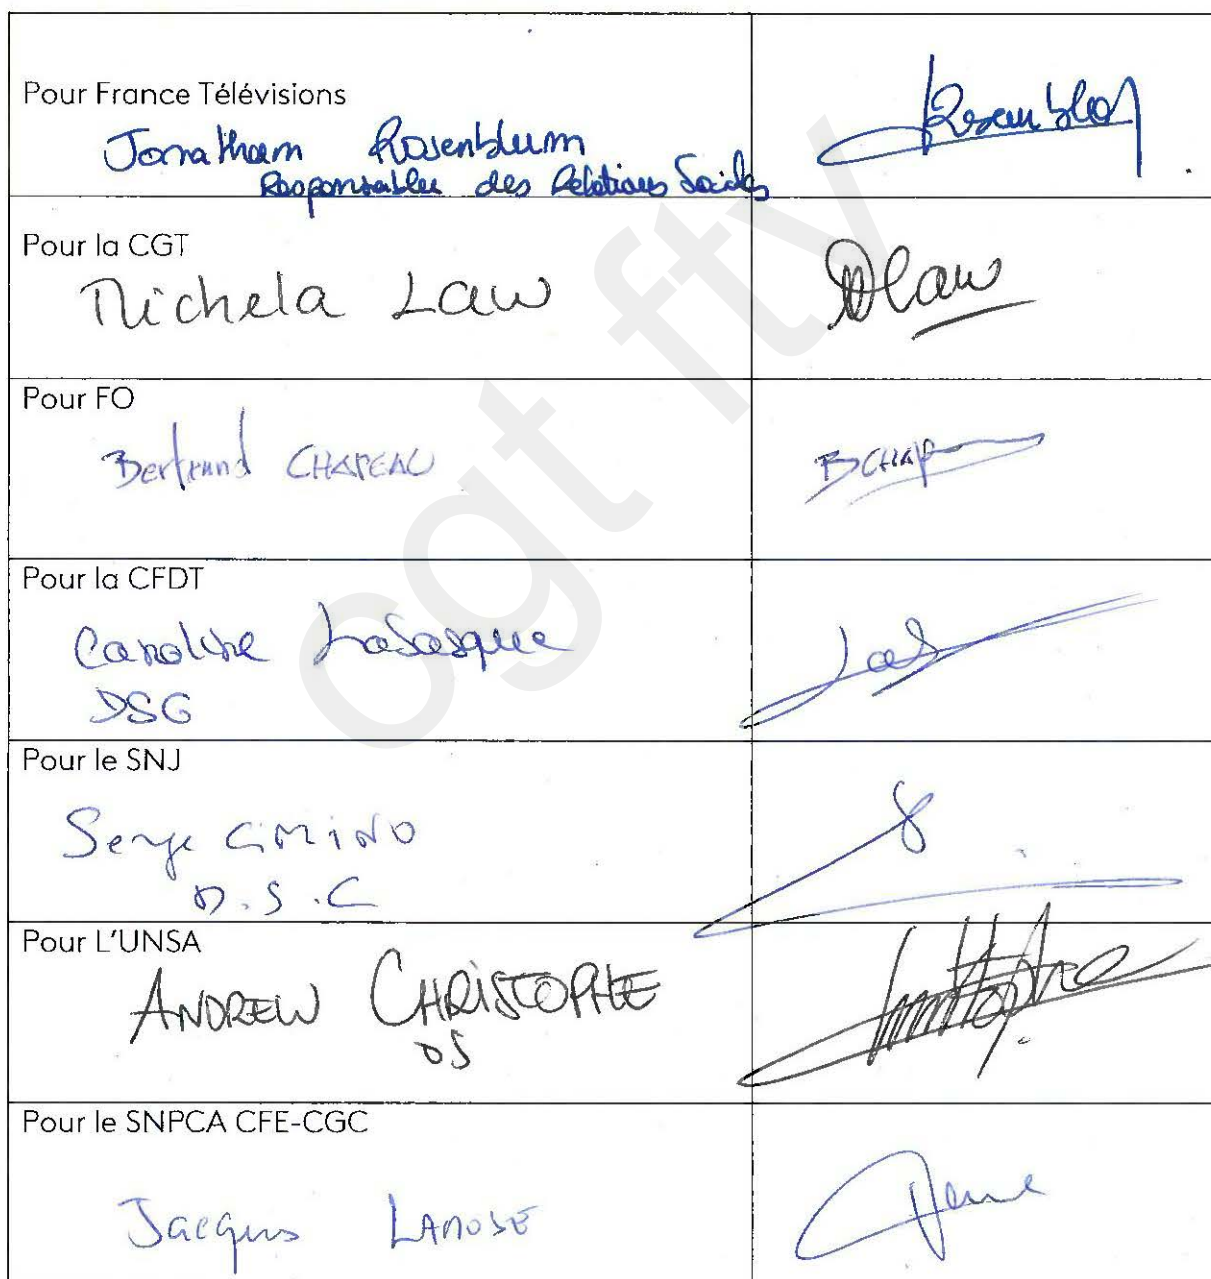 Pour France Télévisions
Jonatham Rosenblum
Responsable des Relations Sociales
Pour la CGT
Michela Law
Law
Pour FO
Bertrand CHAPEAU
BCHAP
Pour la CFDT
Caroline
DSG
Pour le SNJ
Serge CIMINO
D.S.C
Pour L'UNSA
ANDREW CHRISTOPHE
DS
Pour le SNPCA CFE-CGC
Jacques
cgt ftv